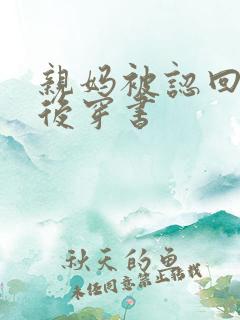 親媽被認回
後穿書
秋天的魚
未經同意禁止轉載